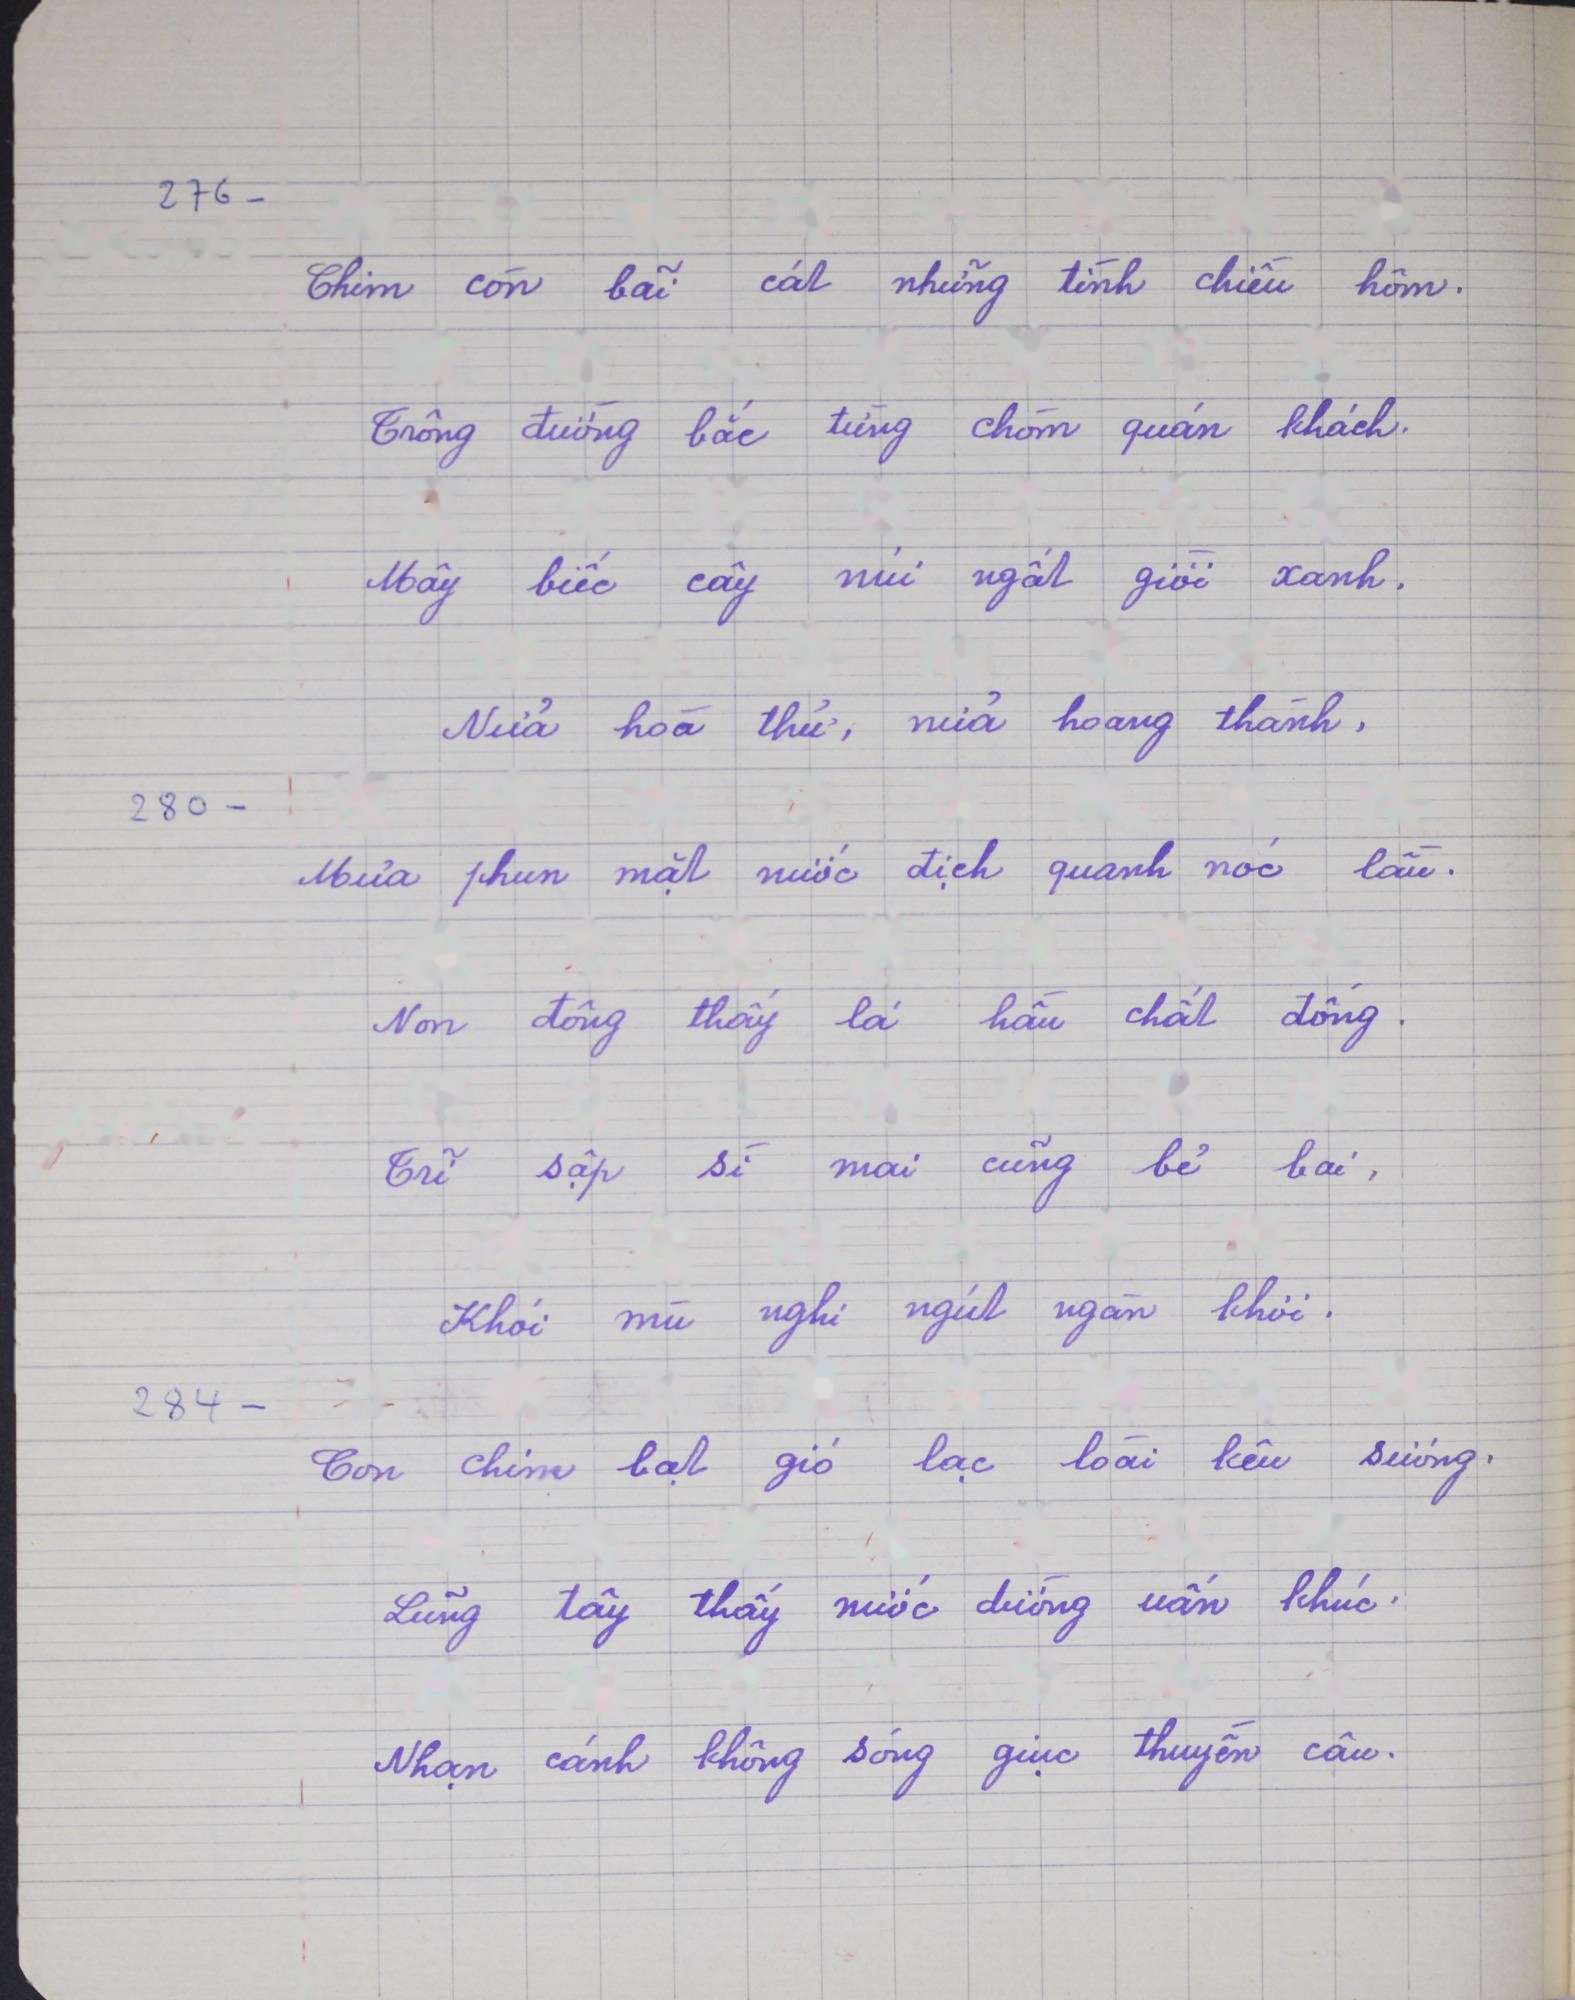 276-
Chim còn bãi cát những tình chiều hôm.
Trông đường bắc từng chòm quán khách.
Mây biếc cây núi ngất giời xanh.
Nửa hoà thử, nửa hoang thành,
280-
Mưa phun mặt nước địch quanh nóc lầu.
Non đông thấy lá hầu chất đống.
Trĩ sập sì mai cũng bẻ bai,
Khói mù nghi ngút ngàn khơi.
284-
Con chim bạt gió lạc loài kêu sương.
Lũng tây thấy nước dường uấn khúc.
Nhạn cánh không sóng giục thuyền câu.